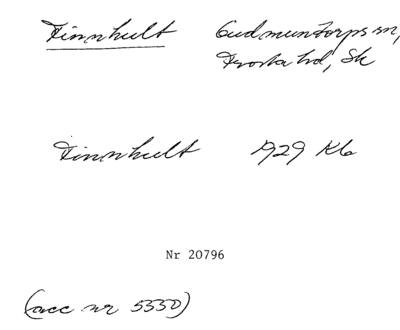 Finnhult Gudmuntorps sn,
Frosta hd, Sk
Finnhult 1929 Kb
Nr 20796
(acc nr 5330)